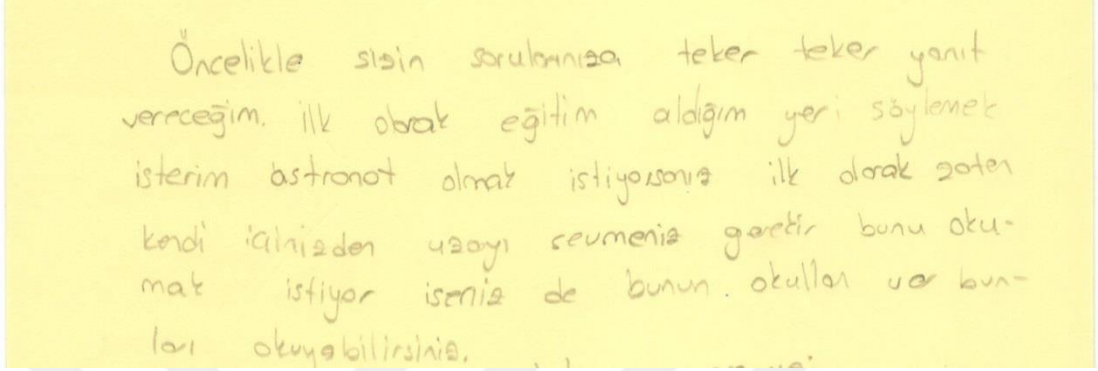 Öncelikle sizin sorularınıza teker teker yanıt
vereceğim. ilk olarak eğitim aldığım yeri söylemek
isterim astronot olmak istiyorsanız ilk olarak zaten
kendi içinizden uzayı sevmeniz gerekir bunu oku-
mak istiyor iseniz de bunun. okulları var bun-
ları okuyabilirsiniz.